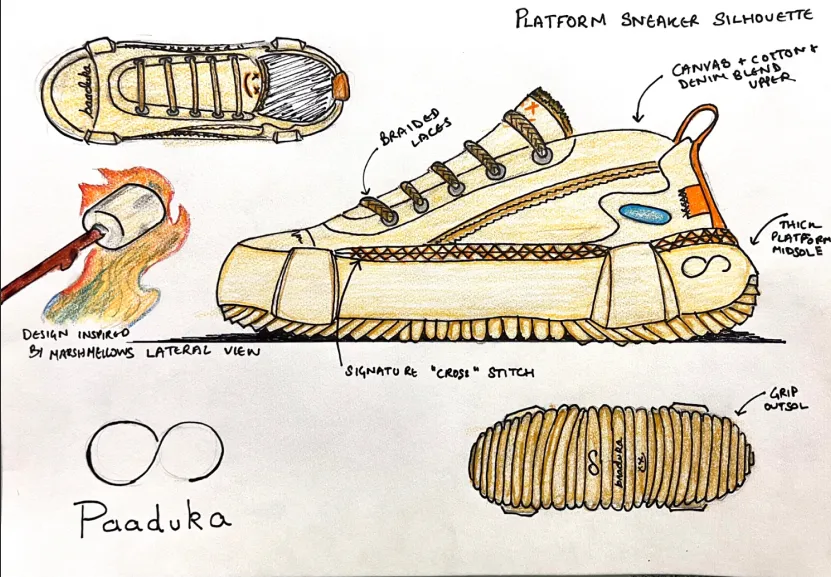 PLATFORM SNEAKER SILHOUETTE
CANVAS + COTTON &
DENIM BLEND
UPPER
BRAIDED
LACES
paaduka
THICK
PLATFORM
MIDSOLE
DESIGN INSPIRED
BY MARSHMELLOWS
LATERAL VIEW
SIGNATURE "CROSS" STITCH
GRIP
OUTSOL
paaduka
Paaduka